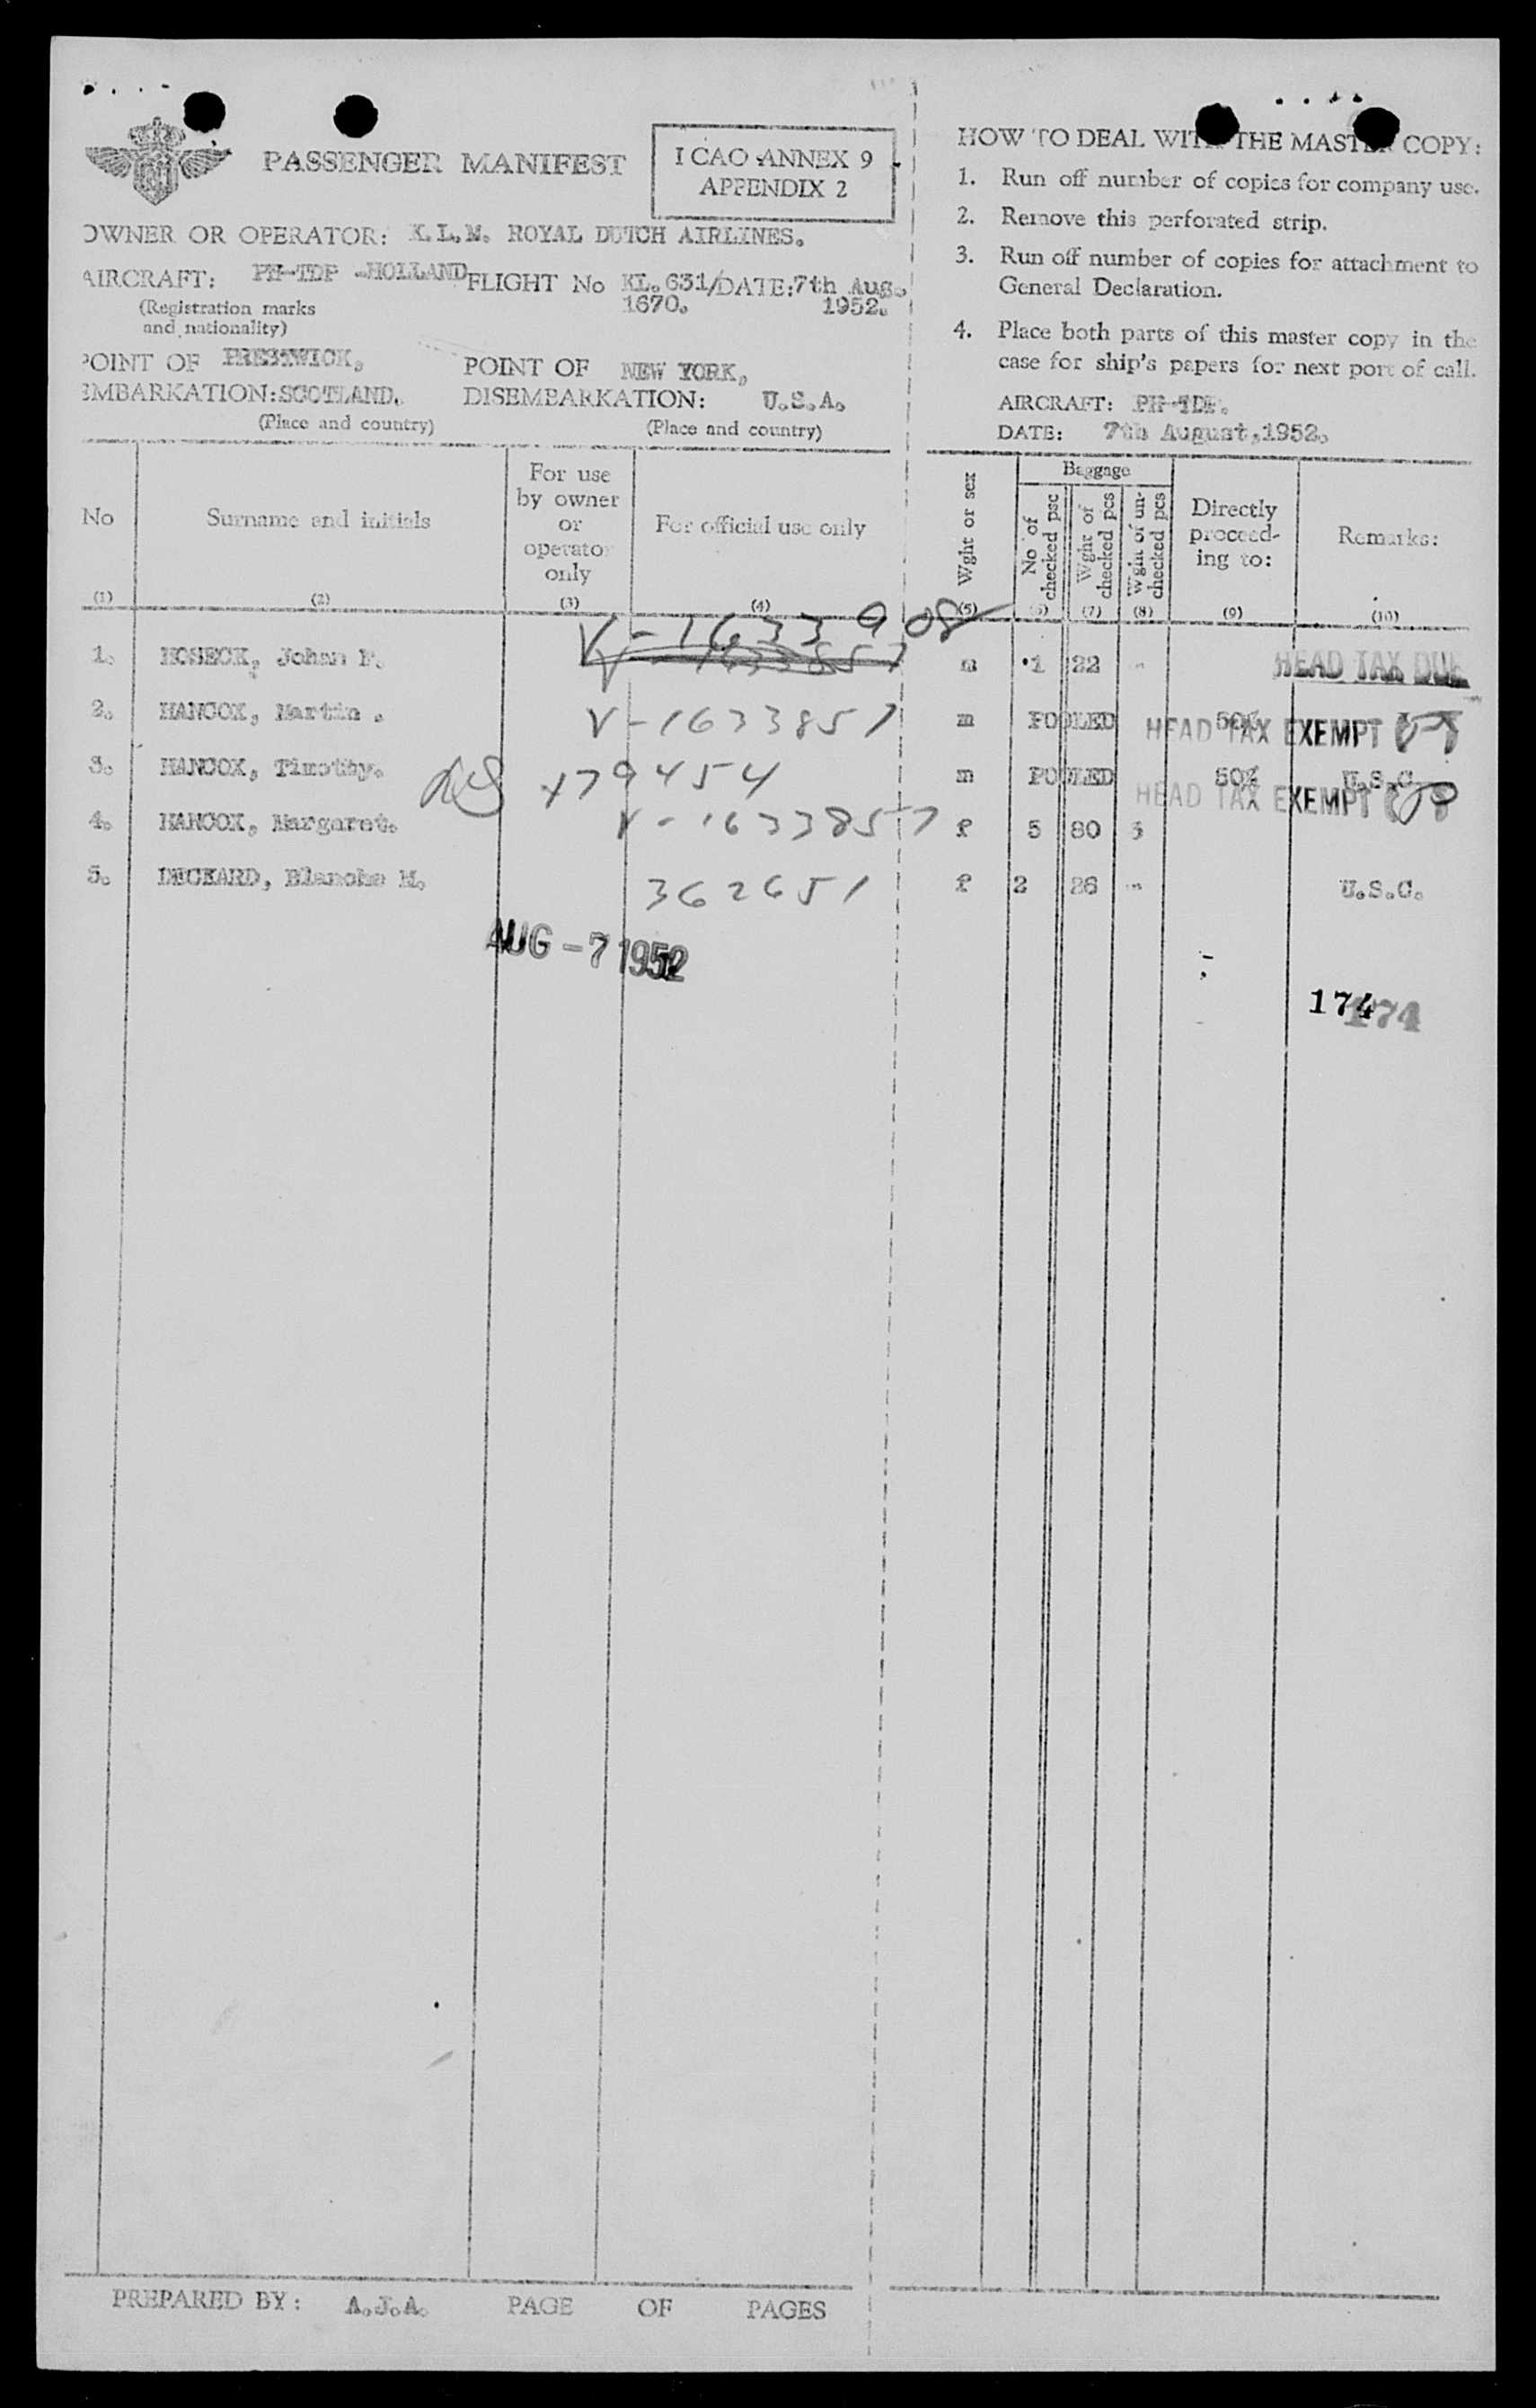 PASSENGER MANIFEST
I CAO ANNEX 9
APPENDIX 2
OWNER OR OPERATOR: K.L.M. ROYAL DUTCH AIRLINES.
AIRCRAFT: PH-TDP -HOLLAND FLIGHT No KL.631/ DATE: 7th Aug.
1670. 1952.
(Registration marks
and nationality)
POINT OF PRESTWICK, POINT OF NEW YORK,
EMBARKATION: SCOTLAND. DISEMBARKATION: U.S.A.
(Place and country) (Place and country)
HOW TO DEAL WITH THE MASTER COPY:
1. Run off number of copies for company use.
2. Remove this perforated strip.
3. Run off number of copies for attachment to
General Declaration.
4. Place both parts of this master copy in the
case for ship's papers for next port of call.
AIRCRAFT: PH-TDP.
DATE: 7th August, 1952.
No
(1)
Surname and initials
(2)
For use
by owner
or
operator
only
(3)
For official use only
(4)
Wght or sex
(5)
Baggage
No of
checked psc
(6)
Wght of
checked pcs
(7)
Wght of un-
checked pcs
(8)
Directly
proceed-
ing to:
(9)
Remarks:
(10)
V-1633908
1. HOSECK, Johan F. V-1633857 m 1 22 - HEAD TAX DUE
2. HANCOX, Martin . V-1633857 m POOLED 50% HEAD TAX EXEMPT
3. HANCOX, Timothy. 179454 m POOLED 50% U.S.C.
HEAD TAX EXEMPT
4. HANCOX, Margaret. V-1633857 f 5 80 3
5. DECKARD, Blanche M. 362651 f 2 26 - U.S.C.
AUG -7 1952
174 174
PREPARED BY: A.J.A. PAGE OF PAGES